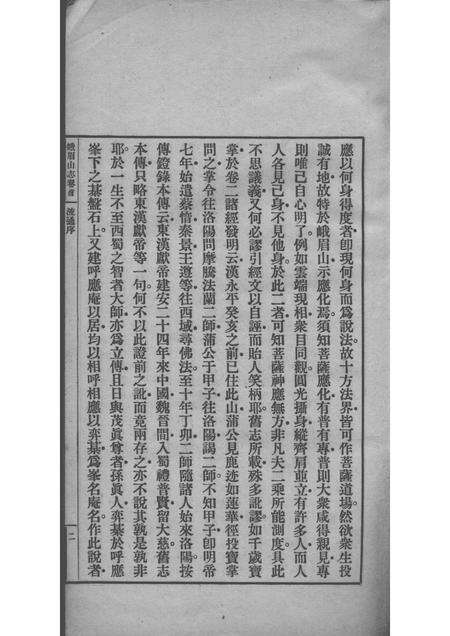 應以何身得度者卽現何身而爲說法故十方法界皆可作菩薩道場然欲衆生投
誠有地故特於峨眉山示應化焉須知菩薩應化有普有專普則大衆咸得親見專
則唯己自心明了例如雲端現相衆目同觀圓光攝身縱齊肩並立有許多人而人
人各見己身不見他身於此二者可知菩薩神應無方非凡夫二乘所能測度具此
不思議義又何必謬引經文以自誣而貽人笑柄耶舊志所載殊多訛謬如千歲寶
掌於卷二諸經發明云漢永平癸亥之前已住此山蒲公見鹿迹如蓮華徑投寶掌
問之掌令往洛陽問摩騰法蘭二師蒲公於甲子往洛陽謁二師不知甲子卽明帝
七年始遣蔡愔秦景王遵等往西域尋佛法至十年丁卯二師隨諸人始來洛陽按
傳燈錄本傳云東漢獻帝建安二十四年來中國魏晉間入蜀禮普賢留大慈舊志
本傳只略東漢獻帝等一句何不以此證前之訛而竟兩存之亦不說其孰是孰非
耶於一生不至西蜀之智者大師亦爲立傳且日與茂眞尊者孫眞人弈棊於呼應
峯下之棊盤石上又建呼應庵以居均以相呼相應以弈棊爲峯名庵名作此說者
峨眉山志卷首 流通序 二